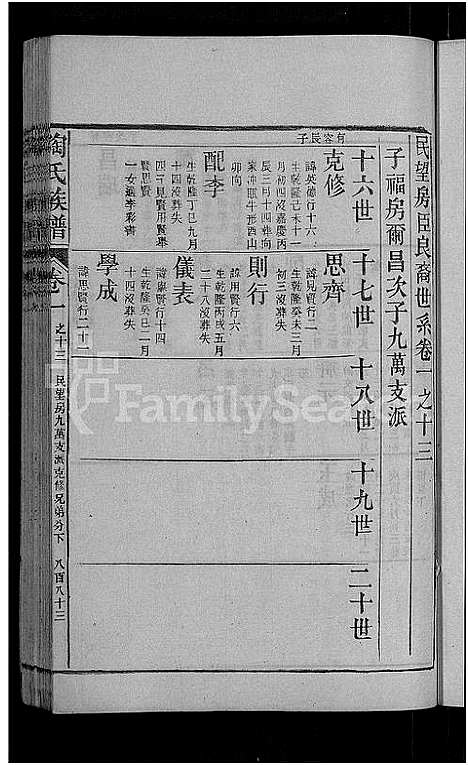 民望房臣良裔世系卷一之十三
子福房爾昌次子九萬支派
十六世
十七世
十八世
十九世
二十世
有容長子
克修
諱英德行十六
生乾隆己未十一
月初四沒嘉慶丙
辰三月十四葬向
家冲眠牛形酉山
卯向
配李
生乾隆丁巳九月
十四沒葬失
子二見賢用賢舉
賢思賢
一女適李彩書
思齊
諱見賢行二
生乾隆癸未三月
初三沒葬失
則行
諱用賢行六
生乾隆丙戌五月
二十八沒葬失
儀表
諱舉賢行十四
生乾隆癸巳二月
十四沒葬失
學成
諱思賢行二十一
陶氏族譜
卷一
之十三
民望房九萬支派克修兄弟分下
八百八十三
FamilySea